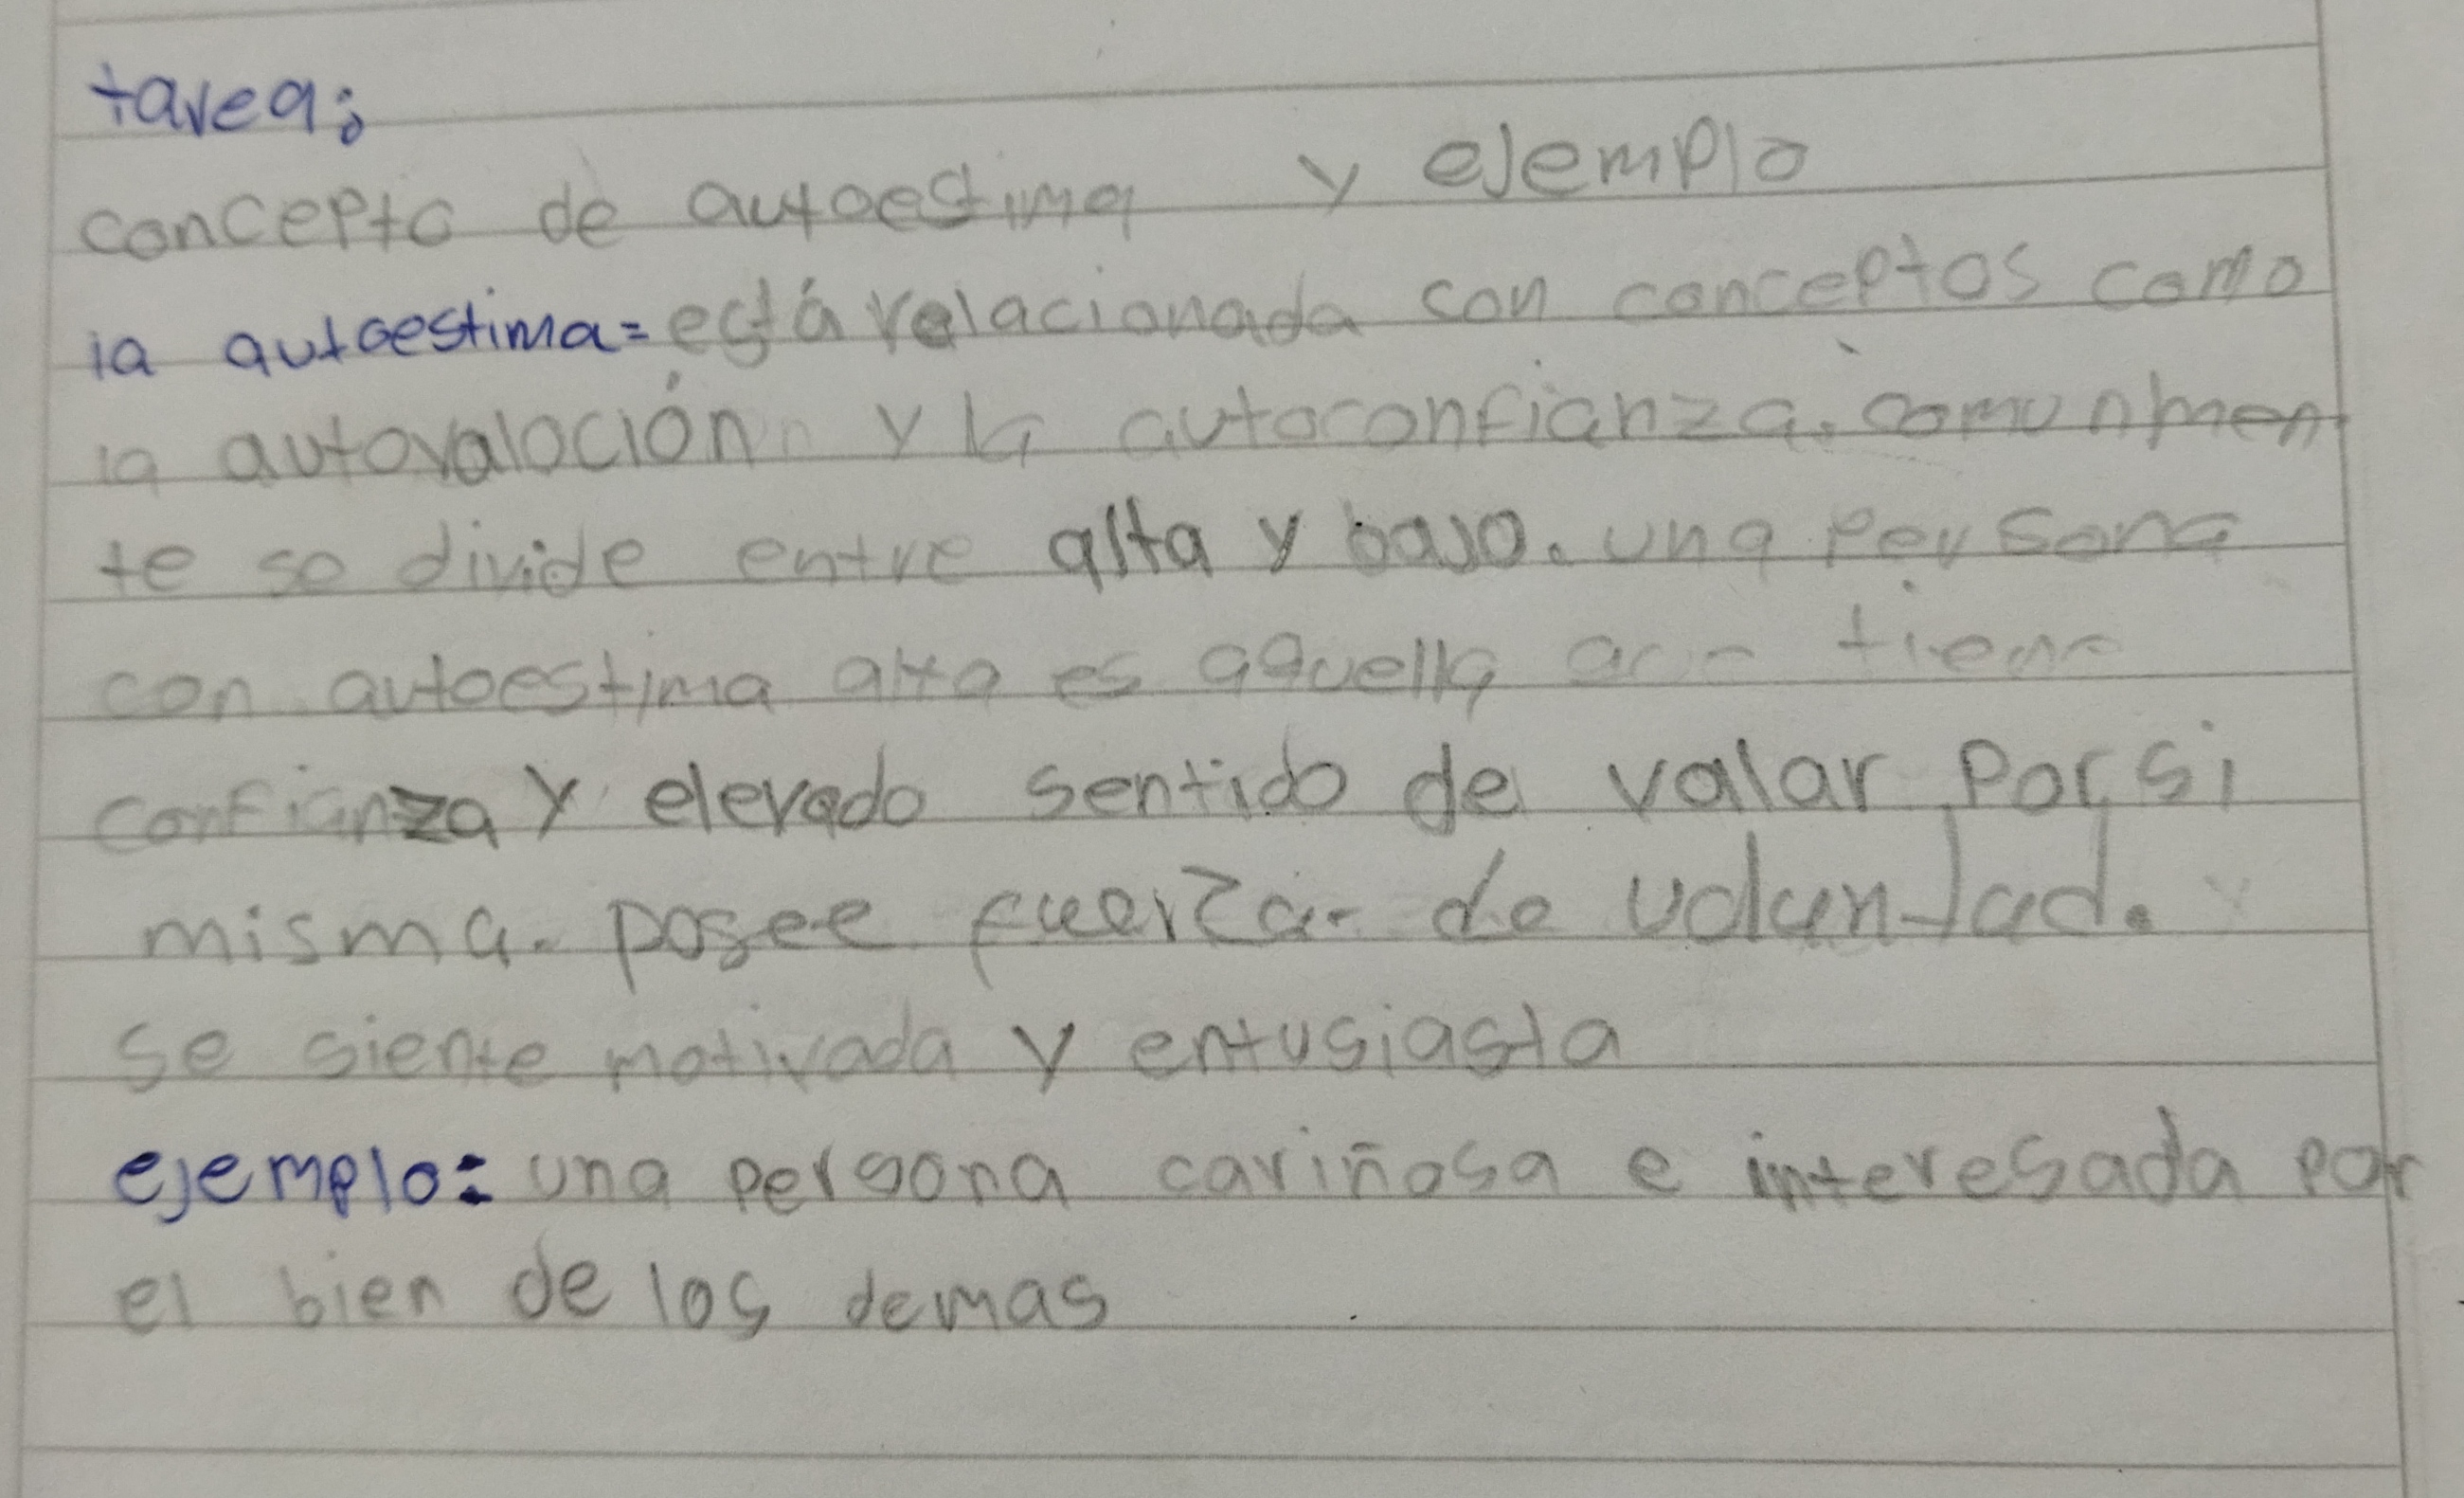 tarea:
concepto de autoestima y ejemplo
la autoestima= está relacionada con conceptos como
la autovaloción y la autoconfianza. comunmen
te se divide entre alta y bajo. una persona
con autoestima alta es aquella que tiene
confianza y elevado sentido de valar por si
misma. posee fuerza de voluntad. y
se siente motivada y entusiasta
ejemplo: una persona cariñosa e interesada por
el bien de los demas